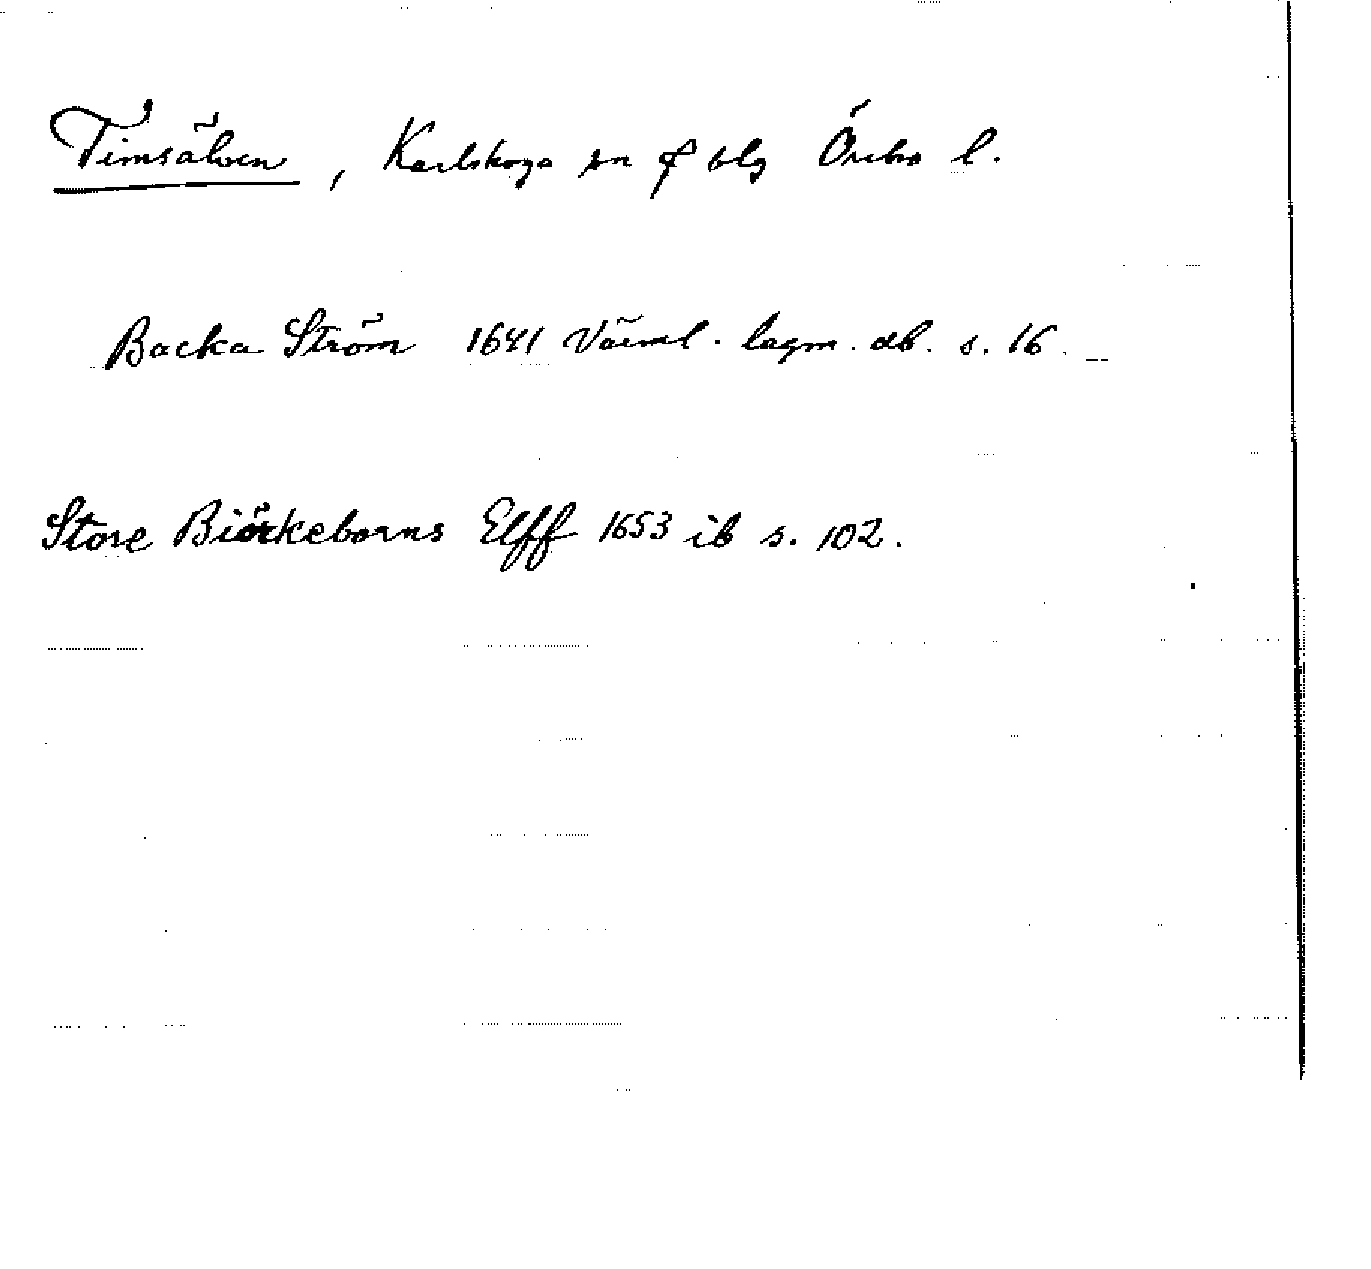 Timsälven, Karlskoga sn & blg Örebro l.
Backa Ström 1641 Värml. lagm. db. s. 16.
Store Biörkeborns Elff 1653 ib s. 102.